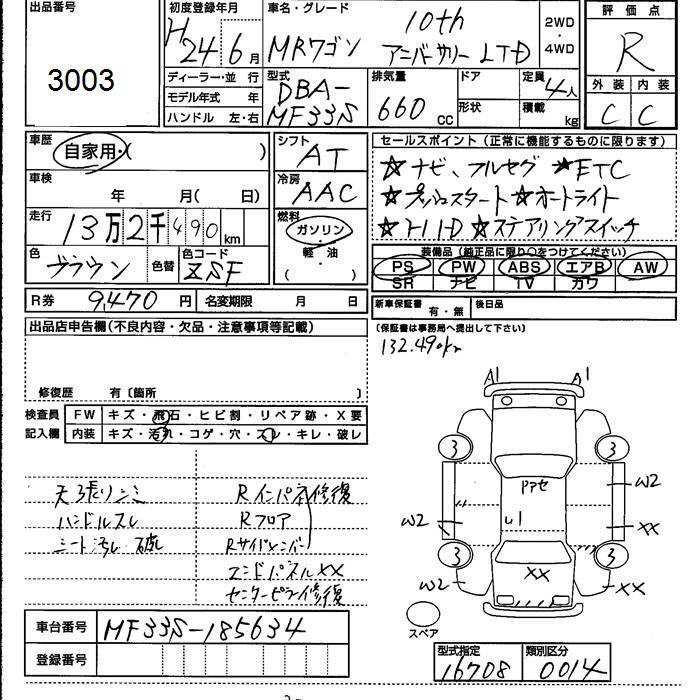 出品番号
3003
初度登録年月
H24 6月
車名・グレード
MRワゴン 10th アニバーサリーLTD
2WD
・
4WD
評価点
R
外装 内装
C C
ディーラー・並 行
モデル年式 年
ハンドル 左・右
型式
DBA-
MF33S
排気量
660 cc
ドア
形状
定員
4人
積載
kg
車歴
自家用・( )
車検
年 月( 日)
走行
13万2千490km
色
ブラウン
色替
色コード
ZSF
シフト
AT
冷房
AAC
燃料
ガソリン・
軽・油
( )
セールスポイント(正常に機能するものに限ります)
☆ナビ、フルセグ ☆ETC
☆プッシュスタート☆オートライト
☆HID ☆ステアリングスイッチ
装備品(純正品に限り○をつけてください)
PS PW ABS エアB AW
SR ナビ TV カワ
R券 9,470円 名変期限 月 日
新車保証書 有・無 後日品
(保証書は事務局へ提出して下さい)
132.490km
出品店申告欄(不良内容・欠品・注意事項等記載)
修復歴 有〔箇所 〕
検査員 FW キズ・飛石・ヒビ割・リペア跡・X要
記入欄 内装 キズ・汚れ・コゲ・穴・スレ・キレ・破レ
天張リシミ
ハンドルスレ
シート汚レ 破レ
Rインパネ修復
Rフロア
Rサイドメンバー
エンドパネルXX
センターピラー修復
A1 A1
3 3
W2
U1
W2 XX
3 3
W2 XX XX
スペア
車台番号 MF33S-185634
登録番号
型式指定 類別区分
16708 0014